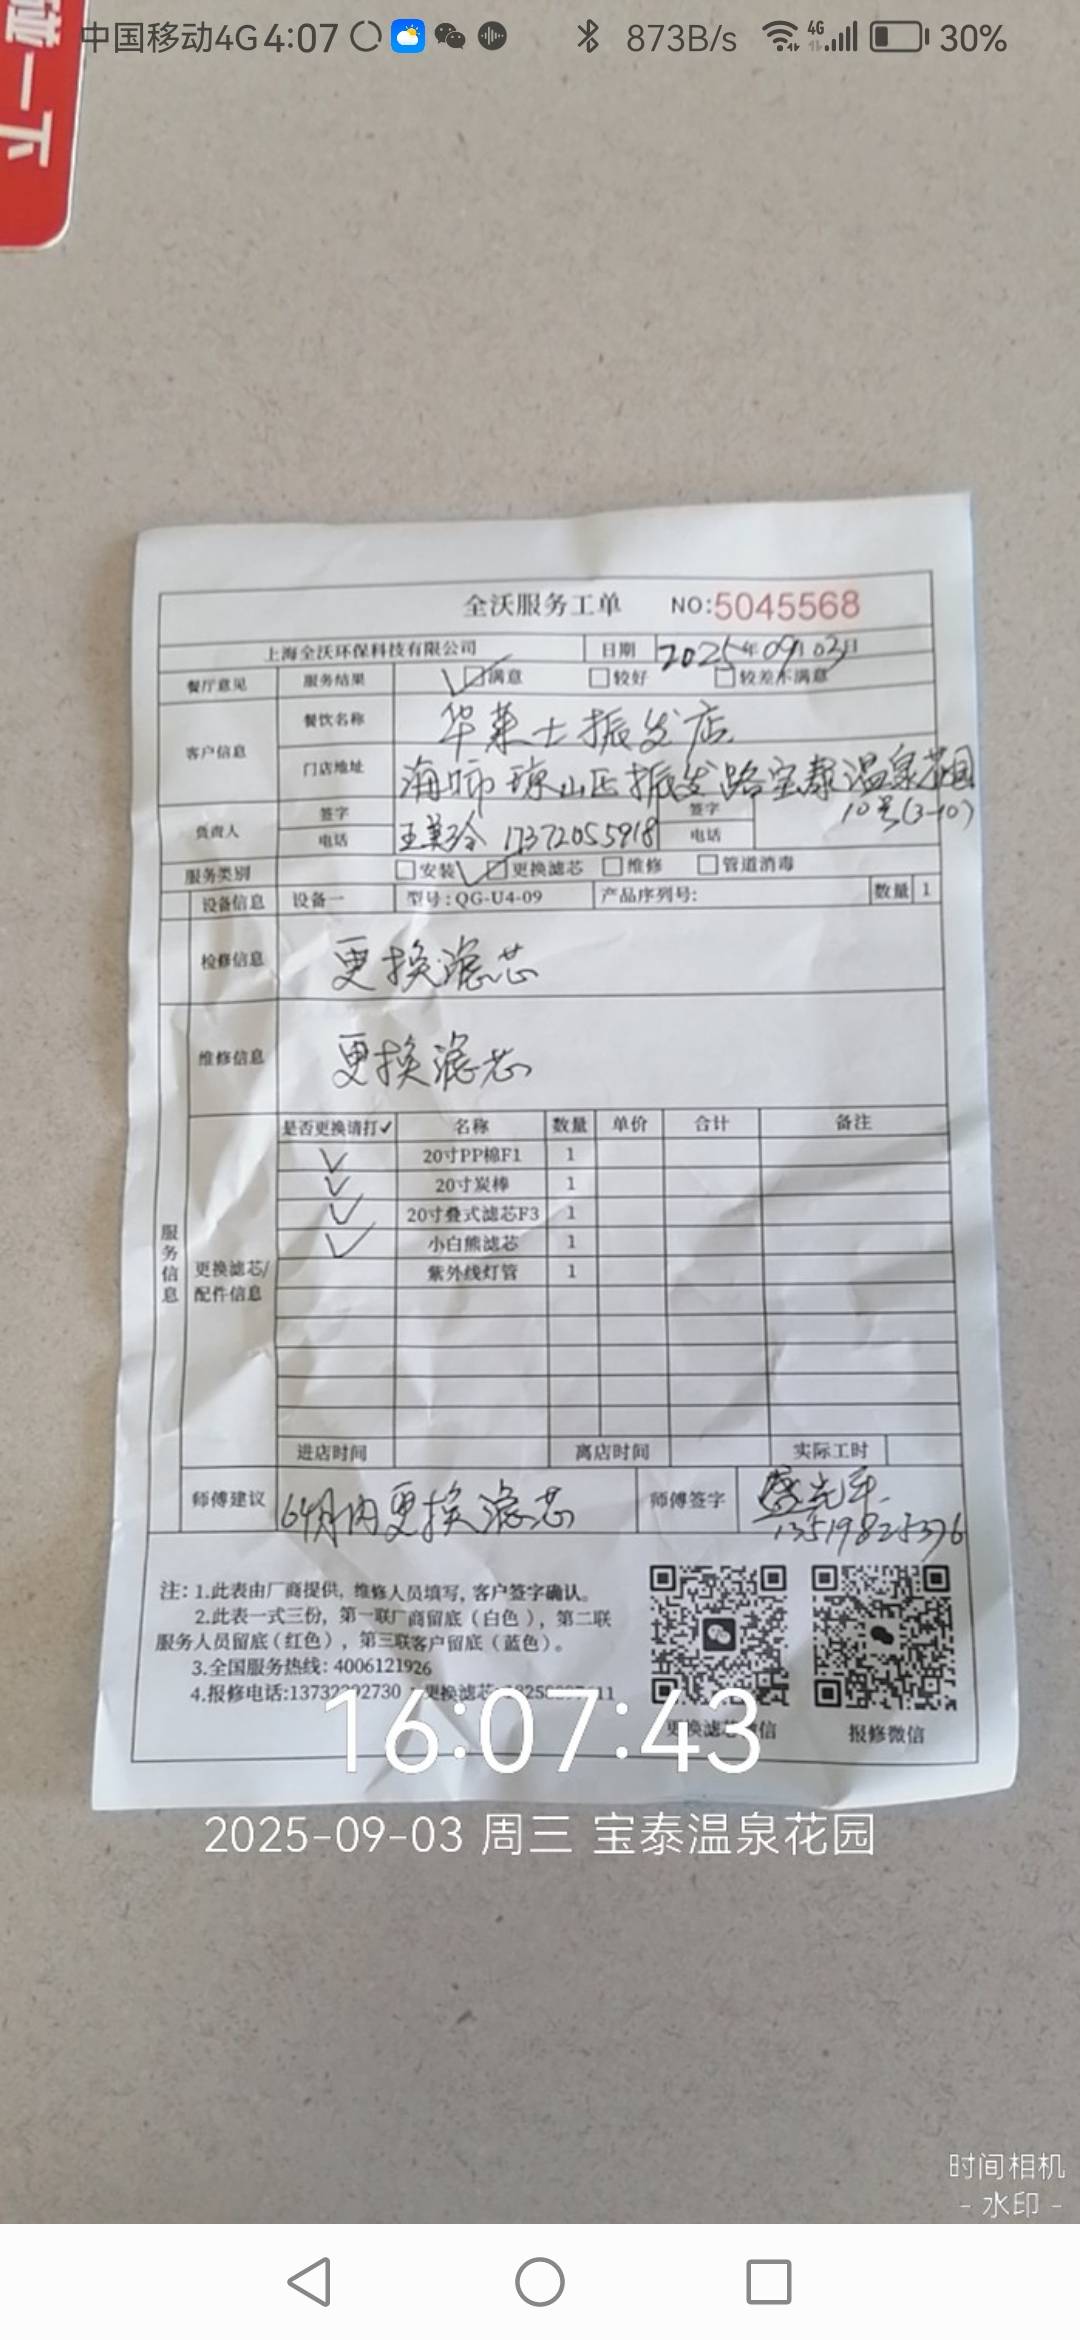 碰一下
中国移动4G 4:07 873B/s 4G 30%
全沃服务工单 NO:5045568
上海全沃环保科技有限公司 日期 2025年09月03日
餐厅意见 服务结果 满意 较好 较差不满意
客户信息 餐饮名称 华莱士振发店
门店地址 海口市琼山区振发路宝泰温泉花园
10号(3-10)
负责人 签字 签字
电话 王美玲 17372055918 电话
服务类别 安装 更换滤芯 维修 管道消毒
设备信息 设备一 型号:QG-U4-09 产品序列号: 数量 1
检修信息 更换滤芯
维修信息 更换滤芯
是否更换请打✓ 名称 数量 单价 合计 备注
✓ 20寸PP棉F1 1
✓ 20寸炭棒 1
✓ 20寸叠式滤芯F3 1
✓ 小白熊滤芯 1
紫外线灯管 1
服务信息
更换滤芯/
配件信息
进店时间 离店时间 实际工时
师傅建议 6个月内更换滤芯 师傅签字
13519825376
注: 1.此表由厂商提供, 维修人员填写, 客户签字确认。
2.此表一式三份, 第一联厂商留底(白色), 第二联
服务人员留底(红色), 第三联客户留底(蓝色)。
3.全国服务热线: 4006121926
4.报修电话: 更换滤芯
更换滤芯微信 报修微信
16:07:43
2025-09-03 周三 宝泰温泉花园
时间相机
- 水印 -